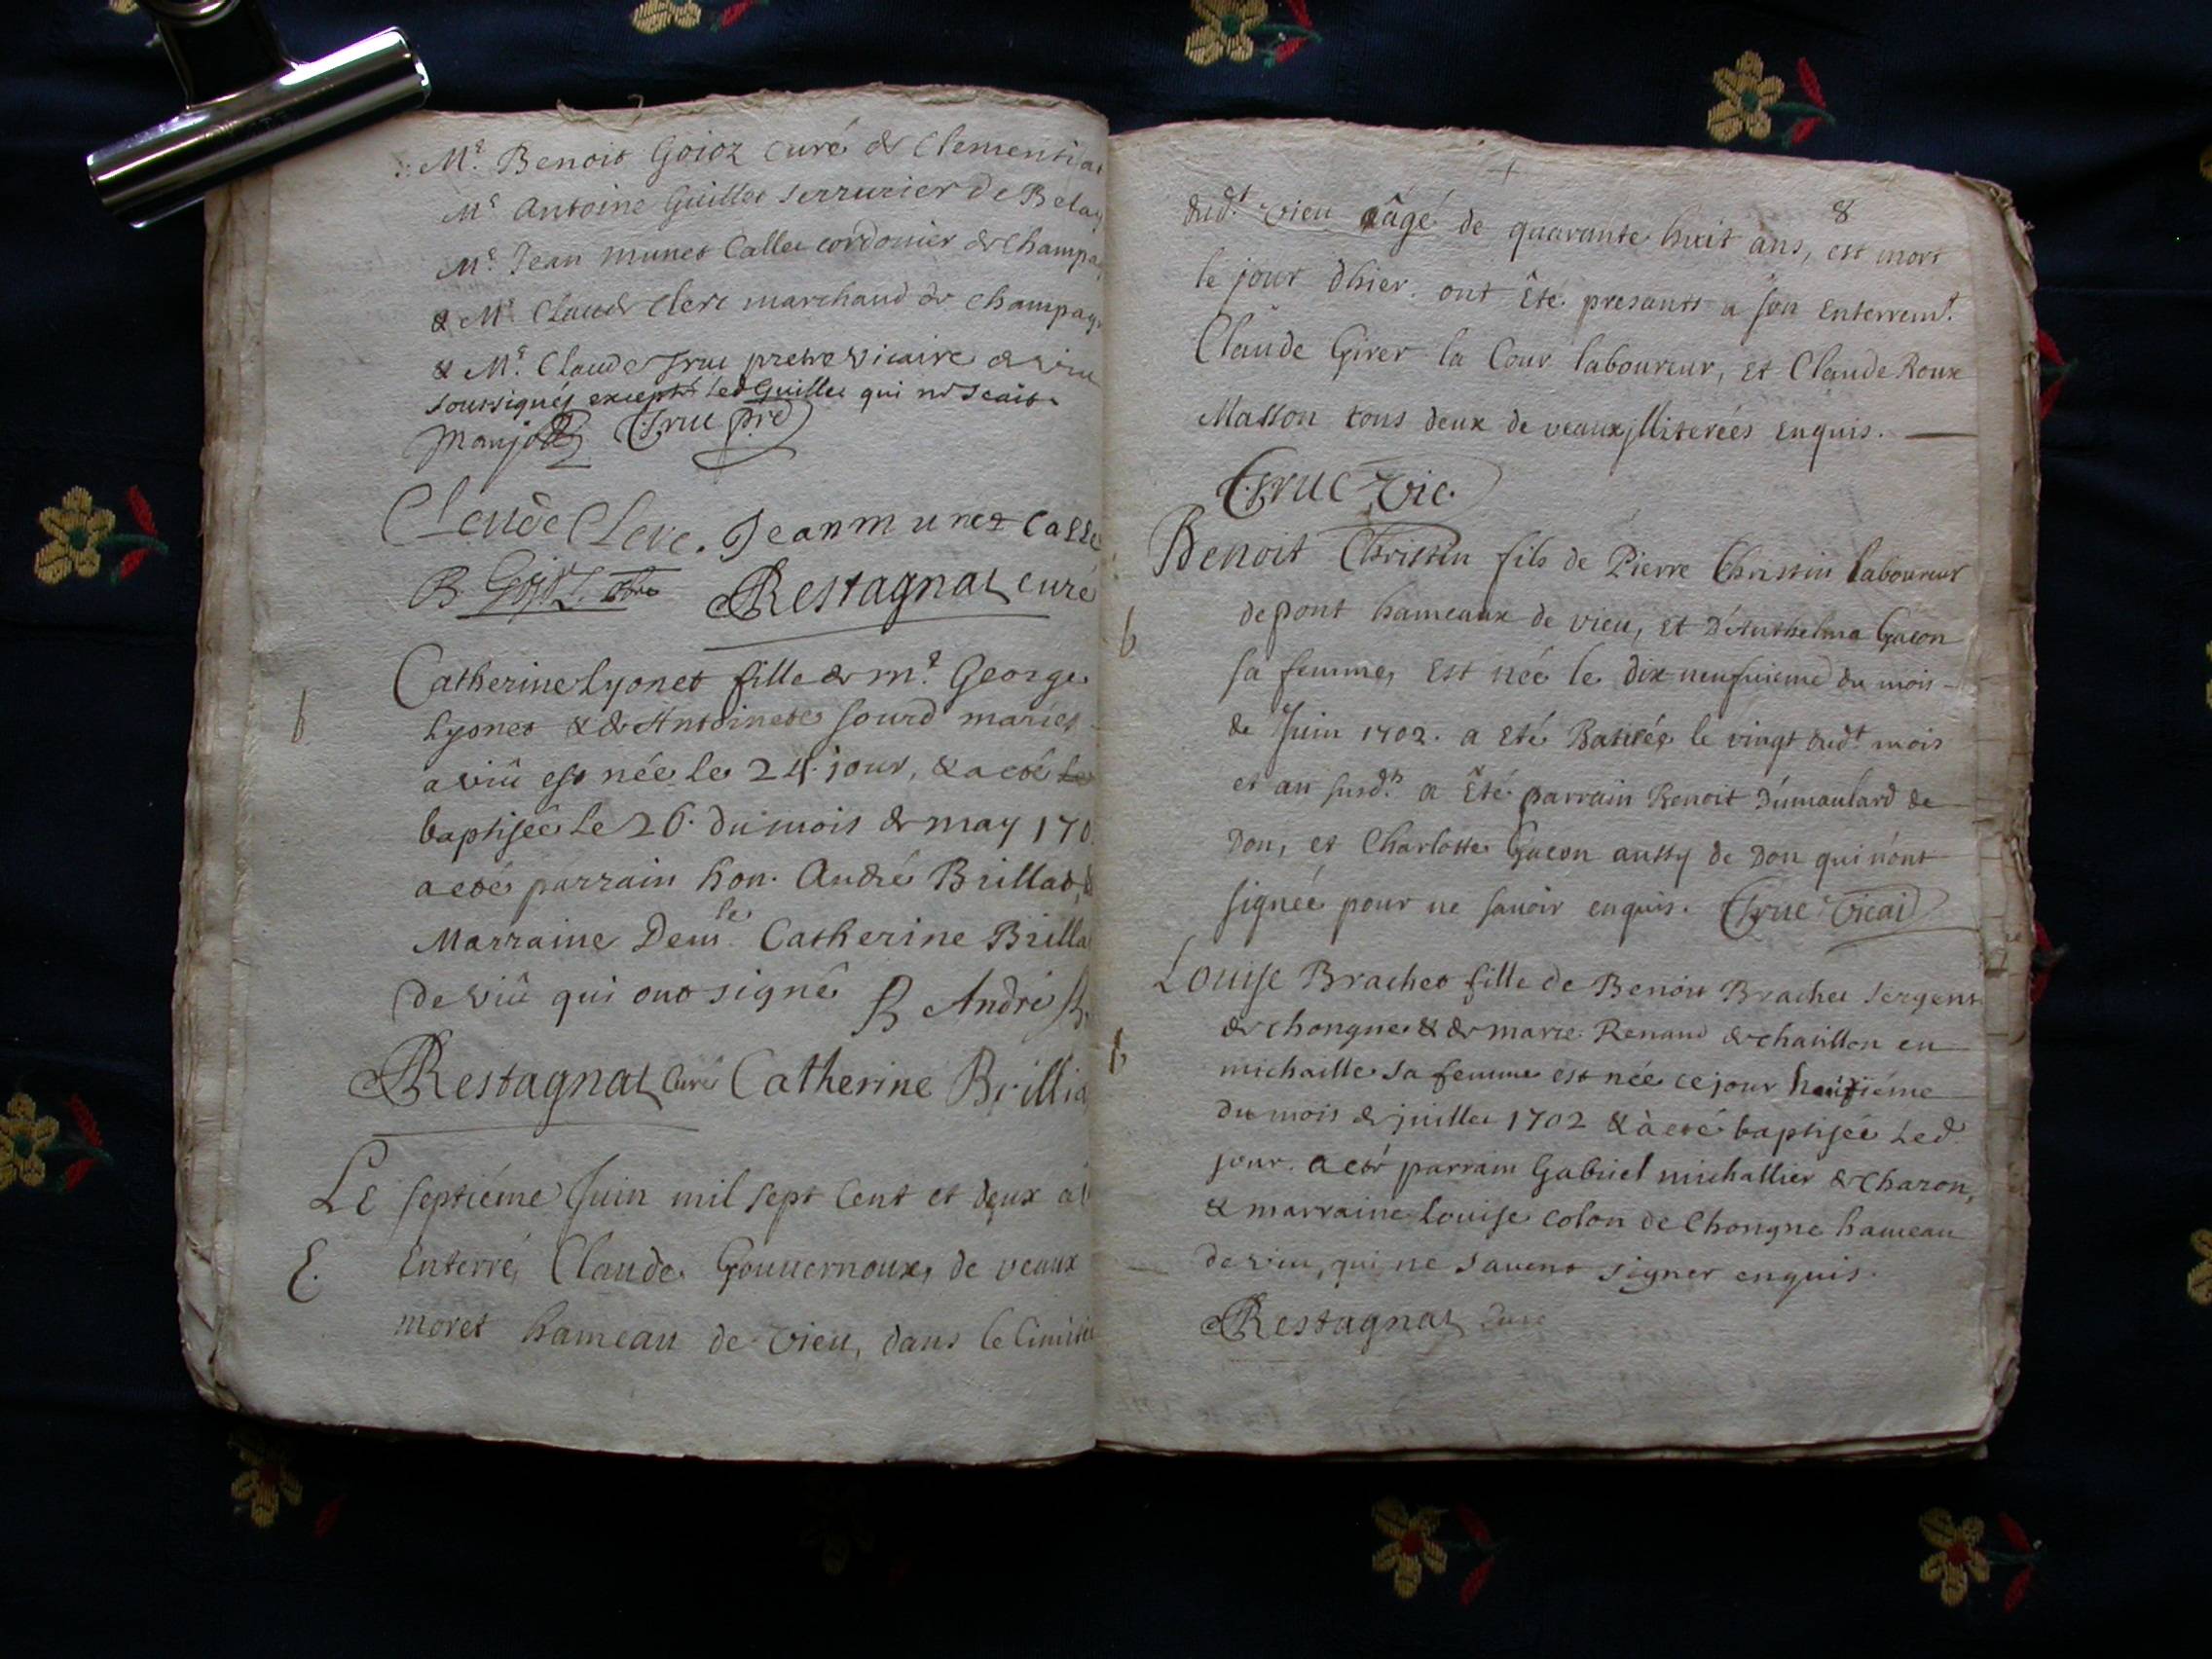 Mr. Benoit Goioz curé de Clementia
Mr Antoine Guillet serrurier de Belay
Mr. Jean Munet Callet cordonier de Champa
& Mr Claude Clerc marchand de Champag
& Mr. Claude Truc pretre vicaire de viu
soussignés excepté led Guillet qui ne scait.
Truc pre
Claude Clerc. Jean munet Calle
B Restagnat curé
Catherine Lyonet fille de mr. George
Lyonet & de Antoinete sourd mariés
a viû est née le 24. jour, & a eté
baptisée le 26. du mois de may 170
a eté parrain hon. André Brillat, &
Marraine Demlle. Catherine Brilla
de viû qui ont signé B André B.
Restagnat Curé Catherine Brillia
Le septiéme Juin mil sept cent et deux a
E. Enterré, Claude Gouuernoux, de veaux
moret hameau de vieu, dans le Cimitie
8
dudt. vieu âgé de quarante huit ans, est mort
le jour dhier. ont Êté presants a son Enterremt.
Claude Girer la Cour laboureur, et Claude Roux
Masson tous deux de veaux, Illiterées enquis.
Truc Vic.
Benoit Christin fils de Pierre Christin laboureur
de pont hameaux de vieu, et D'Anthelma Gacon
b sa femme, est née le dix neufuieme du mois
de Juin 1702. a eté Batisée le vingt dudt mois
et an susdt. a Êté parrain Benoit Dumaulard de
Don, et Charlotte Gacon aussy de Don qui n'ont
signée pour ne sauoir enquis. Truc Vicai
Louise Brachet fille de Benoit Brachet sergent
b de chongne & de marie Renaud de chatillon en
michaille sa femme est née ce jour
du mois de juillet 1702 & à eté baptisée led
jour. a eté parrain Gabriel michallier de Charon,
& marraine Louise Colon de Chongne hameau
de viu, qui ne sauent signer enquis.
Restagnat Curé